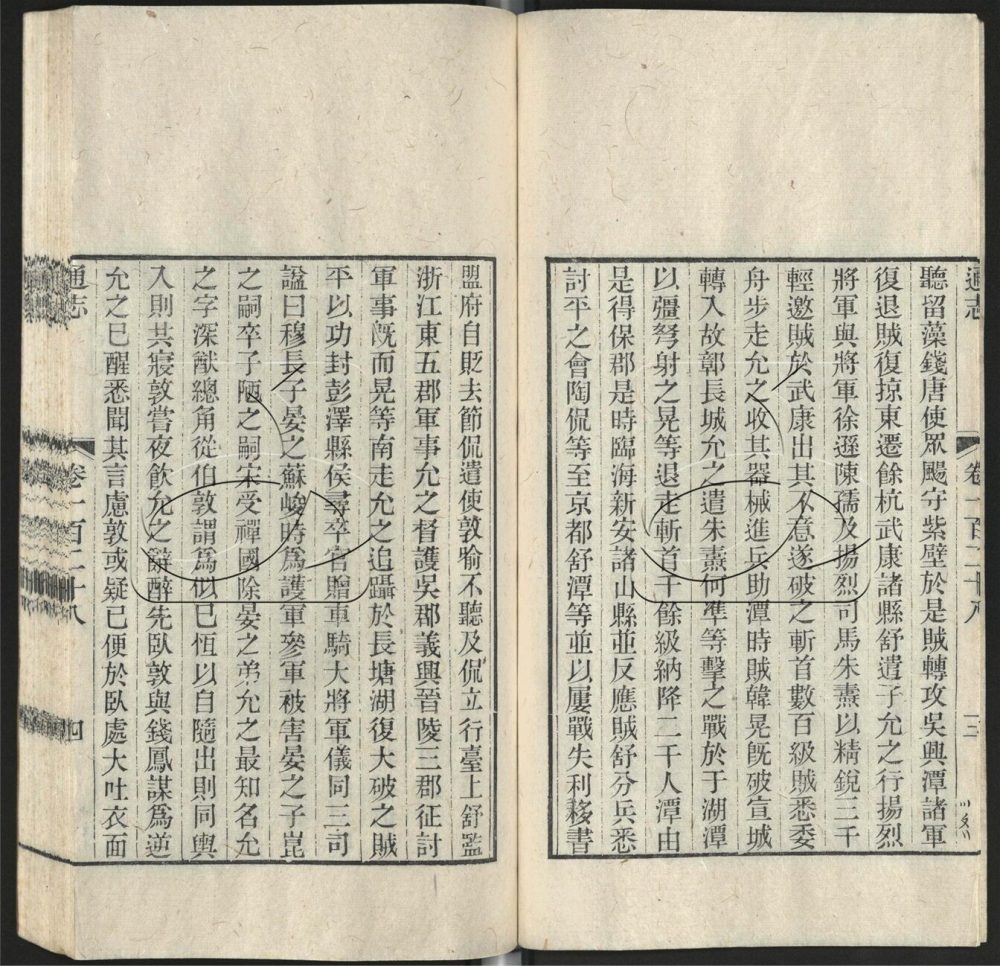 通志 卷一百二十八 三
聽留藻錢唐使眾颺守紫壁於是賊轉攻吳興潭諸軍
復退賊復掠東遷餘杭武康諸縣舒遣子允之行揚烈
將軍與將軍徐遜陳孺及揚烈司馬朱燾以精銳三千
輕邀賊於武康出其不意遂破之斬首數百級賊悉委
舟步走允之收其器械進兵助潭時賊韓晃旣破宣城
轉入故鄣長城允之遣朱燾何準等擊之戰於于湖潭
以彊弩射之晃等退走斬首千餘級納降二千人潭由
是得保郡是時臨海新安諸山縣並反應賊舒分兵悉
討平之會陶侃等至京都舒潭等並以屢戰失利移書
盟府自貶去節侃遣使敦喻不聽及侃立行臺上舒監
浙江東五郡軍事允之督護吳郡義興晉陵三郡征討
軍事旣而晃等南走允之追躡於長塘湖復大破之賊
平以功封彭澤縣侯尋卒官贈車騎大將軍儀同三司
諡曰穆長子晏之蘇峻時爲護軍參軍被害晏之子崑
之嗣卒子陋之嗣宋受禪國除晏之弟允之最知名允
之字深猷總角從伯敦謂爲似已恆以自隨出則同輿
入則共寢敦嘗夜飲允之辭醉先臥敦與錢鳳謀爲逆
允之已醒悉聞其言慮敦或疑已便於臥處大吐衣面
通志 卷一百二十八 四